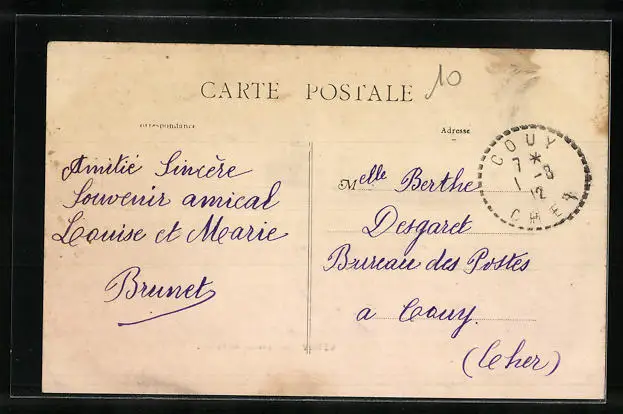 CARTE POSTALE
10
Correspondance
Adresse
Amitié Sincère
Souvenir amical
Louise et Marie
Brunet
Melle Berthe
Desgaret
Bureau des Postes
a Couy.
(Cher)
COUY
7 *
1 -8
12
CHER